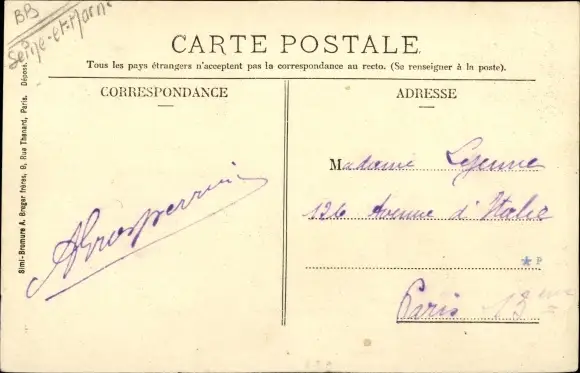 BB
Seine-et-Marne
CARTE POSTALE
Tous les pays étrangers n'acceptent pas la correspondance au recto. (Se renseigner à la poste).
CORRESPONDANCE
ADRESSE
Madame Lejeune
126 Avenue d'Italie
* P
Paris 13eme
Simi-Bromure A. Breger frères, 9, Rue Thenard, Paris. Déposé.